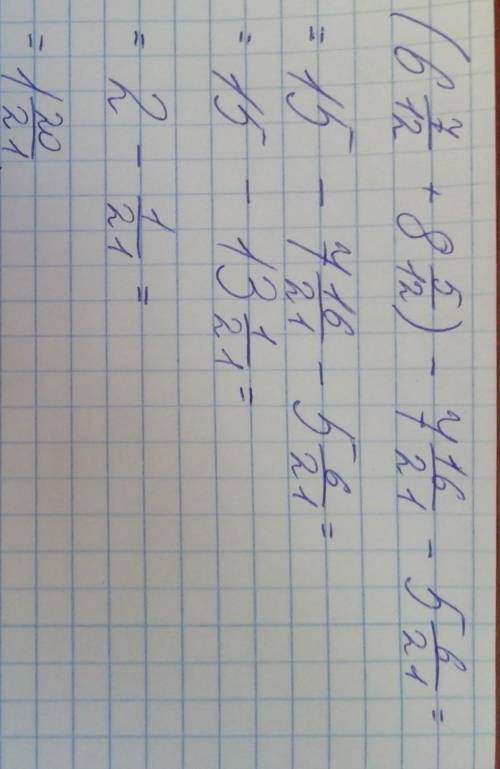 (6 7/12 + 8 5/12) - 7 16/21 - 5 6/21 =
= 15 - 7 16/21 - 5 6/21 =
= 15 - 13 1/21 =
= 2 - 1/21 =
= 1 20/21